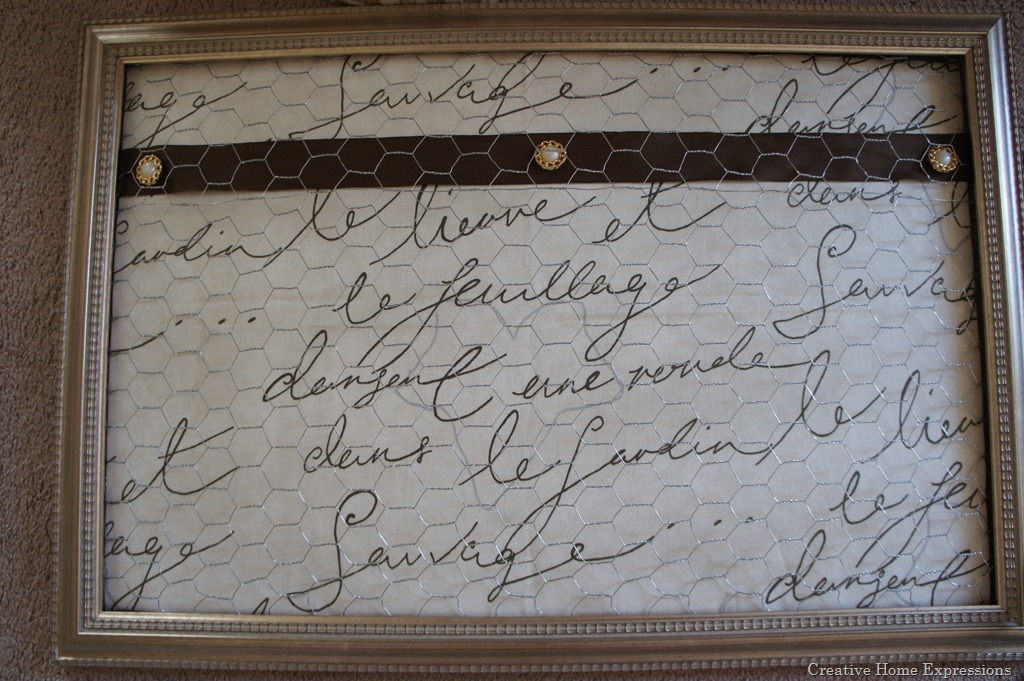 age Sauvage . . . le feui
dansent
jardin, le lierre et dans l
. . . le feuillage Sauvag
dansent une ronde
et dans le jardin, le lierr
age Sauvage . . . le feu
dansent
Creative Home Expressions